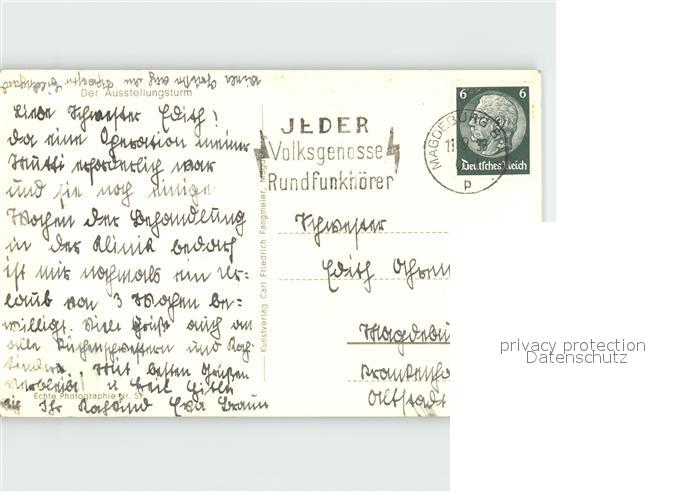 Der Ausstellungsturm
Liebe Schwester Edith!
Da eine Operation meiner
Mutti erforderlich war
und sie noch einige
Wochen der Behandlung
in der Klinik bedarf
ist mir nochmals ein Ur-
laub von 3 Wochen be-
willigt. Viele Grüße auch an
alle Küchenschwestern und Koch
kinder. Mit besten Grüßen
verbleibt u. Heil Hitler
Ihr Kochkind Eva Braun
Echte Photographie Nr. 5
Kunstverlag Carl Friedrich Fangmeier, Magd
JEDER
Volksgenosse
Rundfunkhörer
MAGDEBURG
p
6 6
Deutsches Reich
Schwester
Edith
Magdebu
Krankenha
Altstadt
privacy protection
Datenschutz